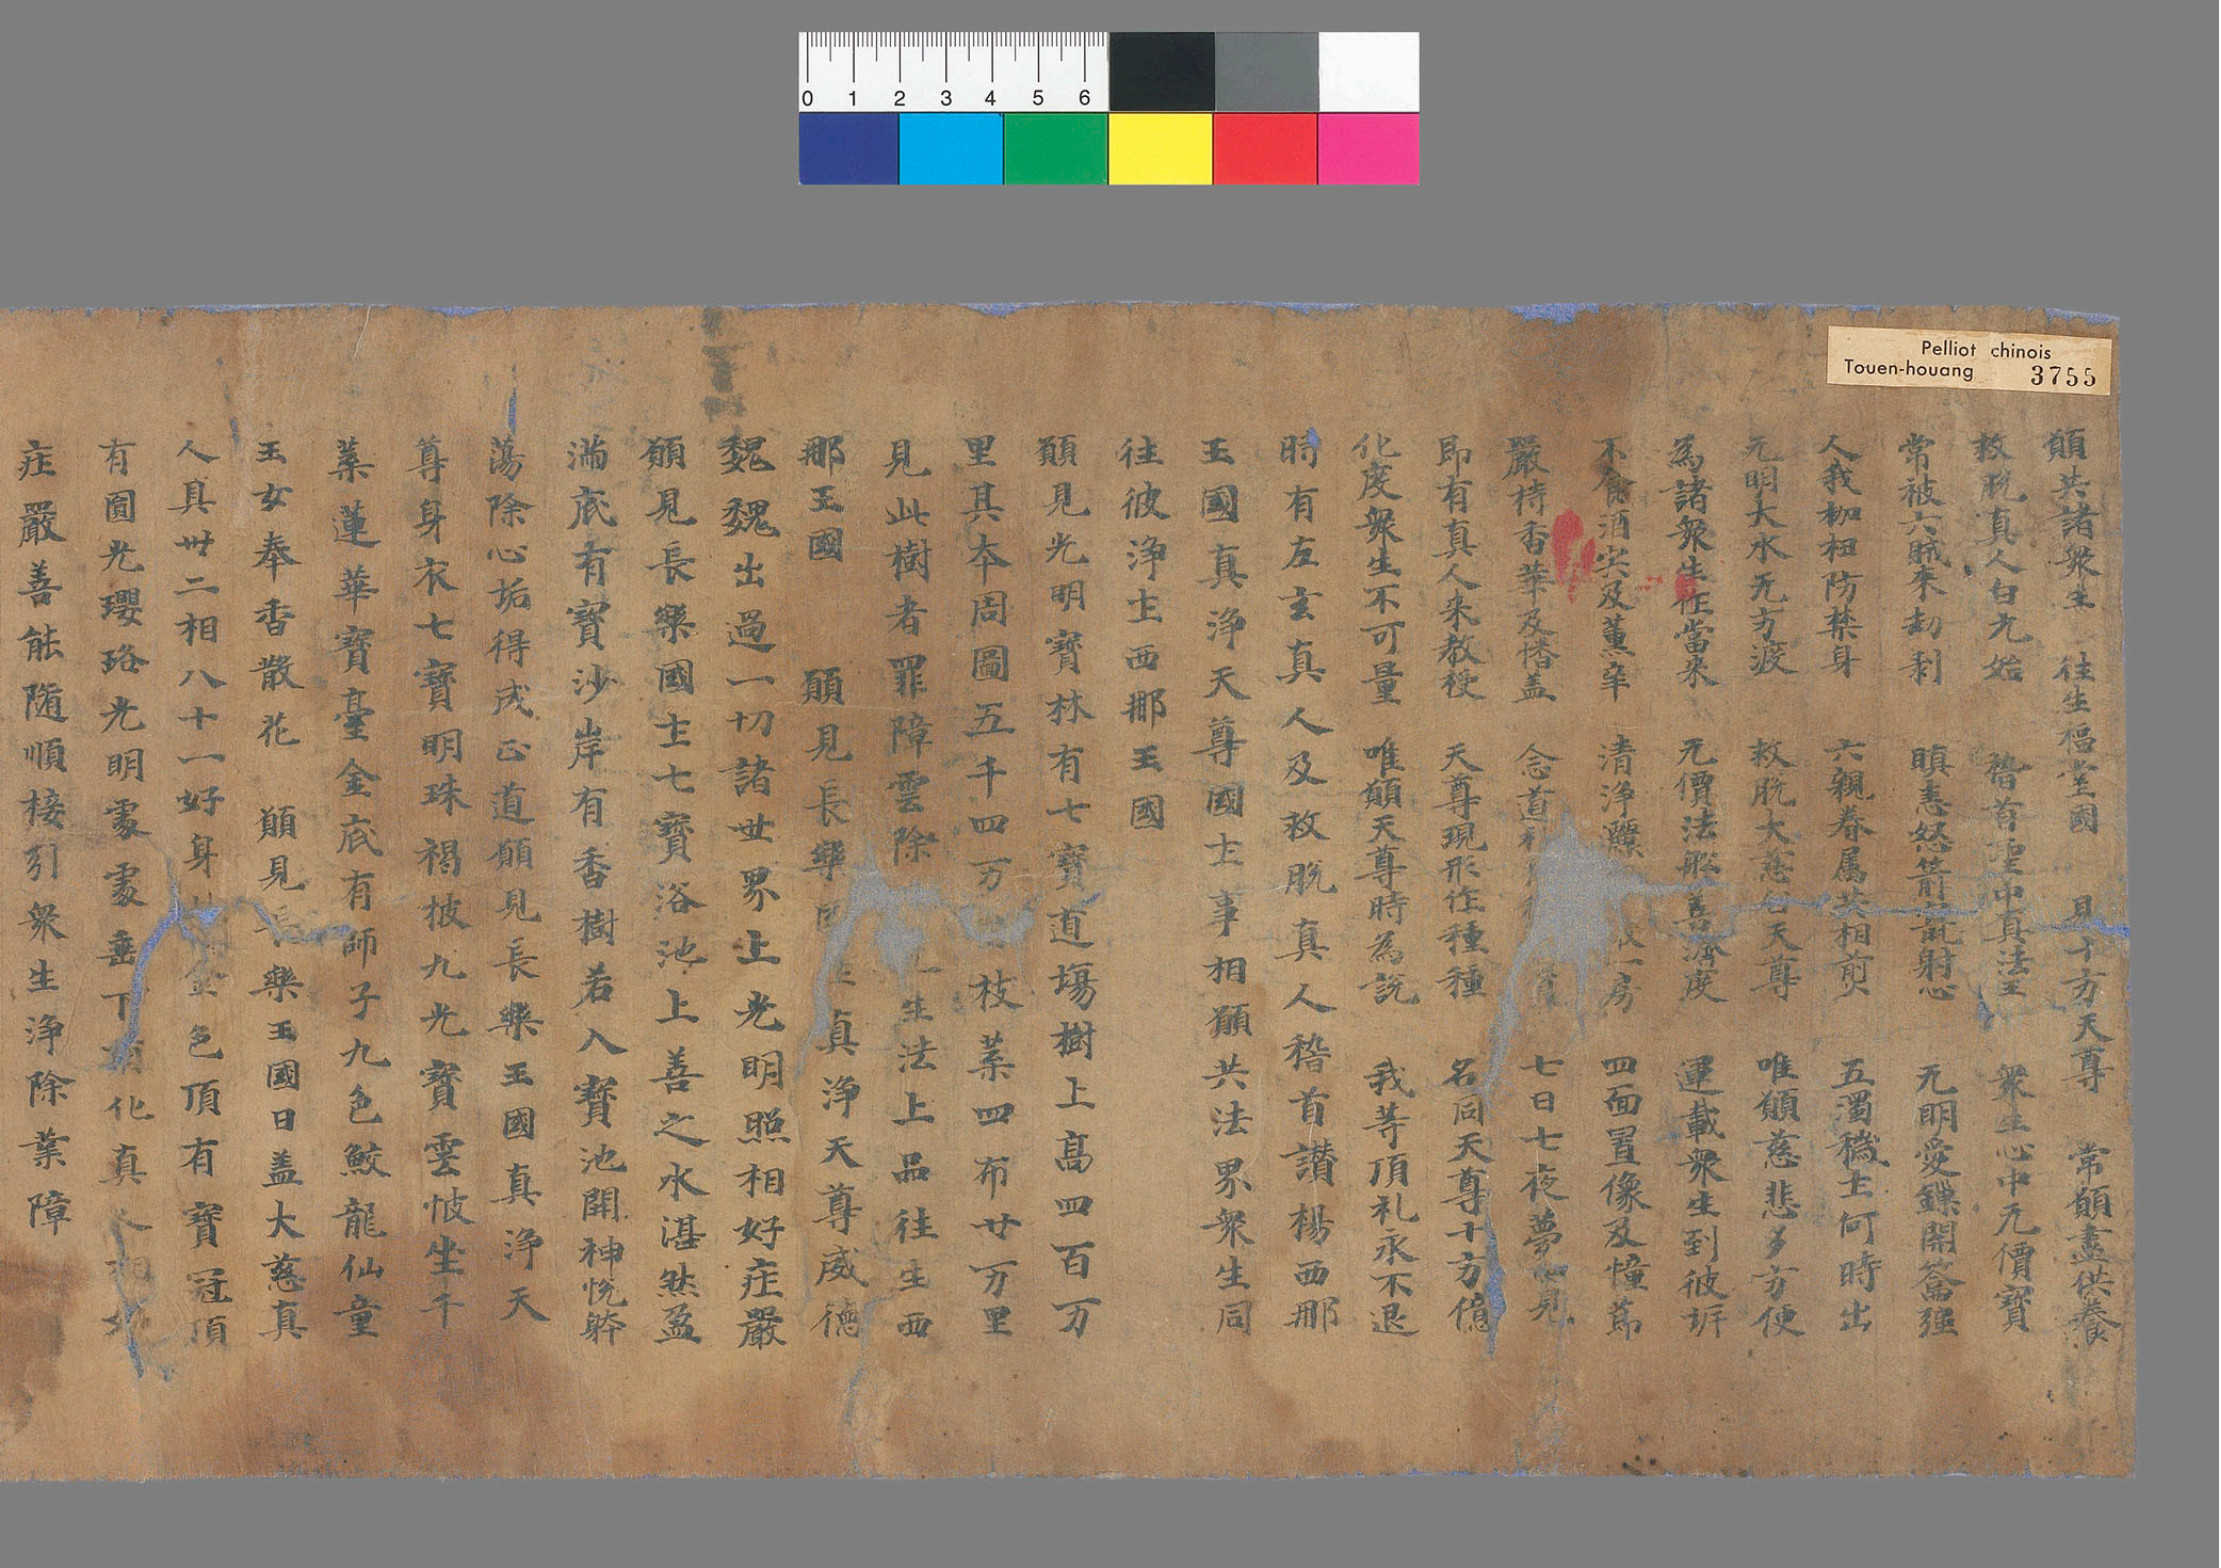 0 1 2 3 4 5 6
Pelliot chinois
Touen-houang 3755
願共諸衆生 往生福堂國 見十方天尊 常願盡供養
救脫真人白元始 稽首聖中真法王 衆生心中无價寶
常被六賊來劫剥 瞋恚怒箭 射心 无明愛鏁開 强
人我枷杻防禁身 六親眷属共相煎 五濁穢土何時出
无明大水无方渡 救脫大慈 天尊 唯願慈悲多方便
為諸衆生作當来 无價法舩善濟度 運載衆生到彼岸
不食酒宍及薰辛 清浄 一房 四面置像及幢莭
嚴持香華及幡盖 念道 七日七夜夢 見
即有真人来教授 天尊現形作種種 名同天尊十方億
化度衆生不可量 唯願天尊時為說 我等頂礼永不退
時有左玄真人及救脫真人稽首讃揚西那
玉國真浄天尊國土事相願共法界衆生同
往彼浄土西那玉國
願見光明寶林有七寶道塲樹上髙四百万
里其夲周圖五千四万 枝葉四布廿万里
見此樹者罪障雲除 生法上品往生西
那玉國 願見長樂 真浄天尊威德
魏魏出過一切諸世界上光明照相好庄嚴
願見長樂國土七寶浴池上善之水湛然盈
滿底有寶沙岸有香樹若入寶池開神悅躰
蕩除心垢得成正道願見長樂玉國真浄天
尊身衣七寶明珠褐披九光寶雲帔坐千
葉蓮華寶臺金底有師子九色鮫龍仙童
玉女奉香散花 願見長樂玉國日盖大慈真
人具卅二相八十一好身 金色頂有寶冠項
有圓光瓔珞光明處處垂下 化真人相
庄嚴善能随順接引衆生浄除業障